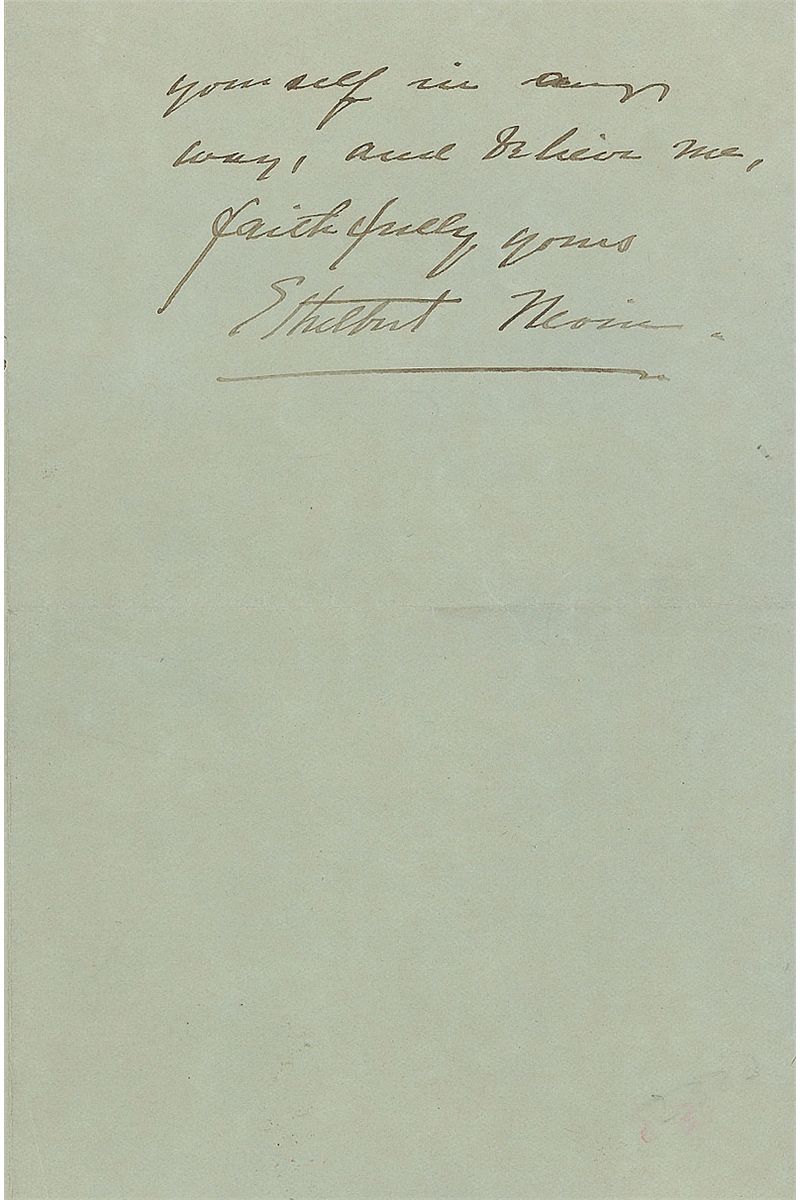 yourself in any
way, and believe me,
faithfully yours
Ethelbert Nevin.